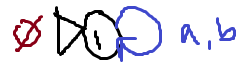 ∅ 1 a,b